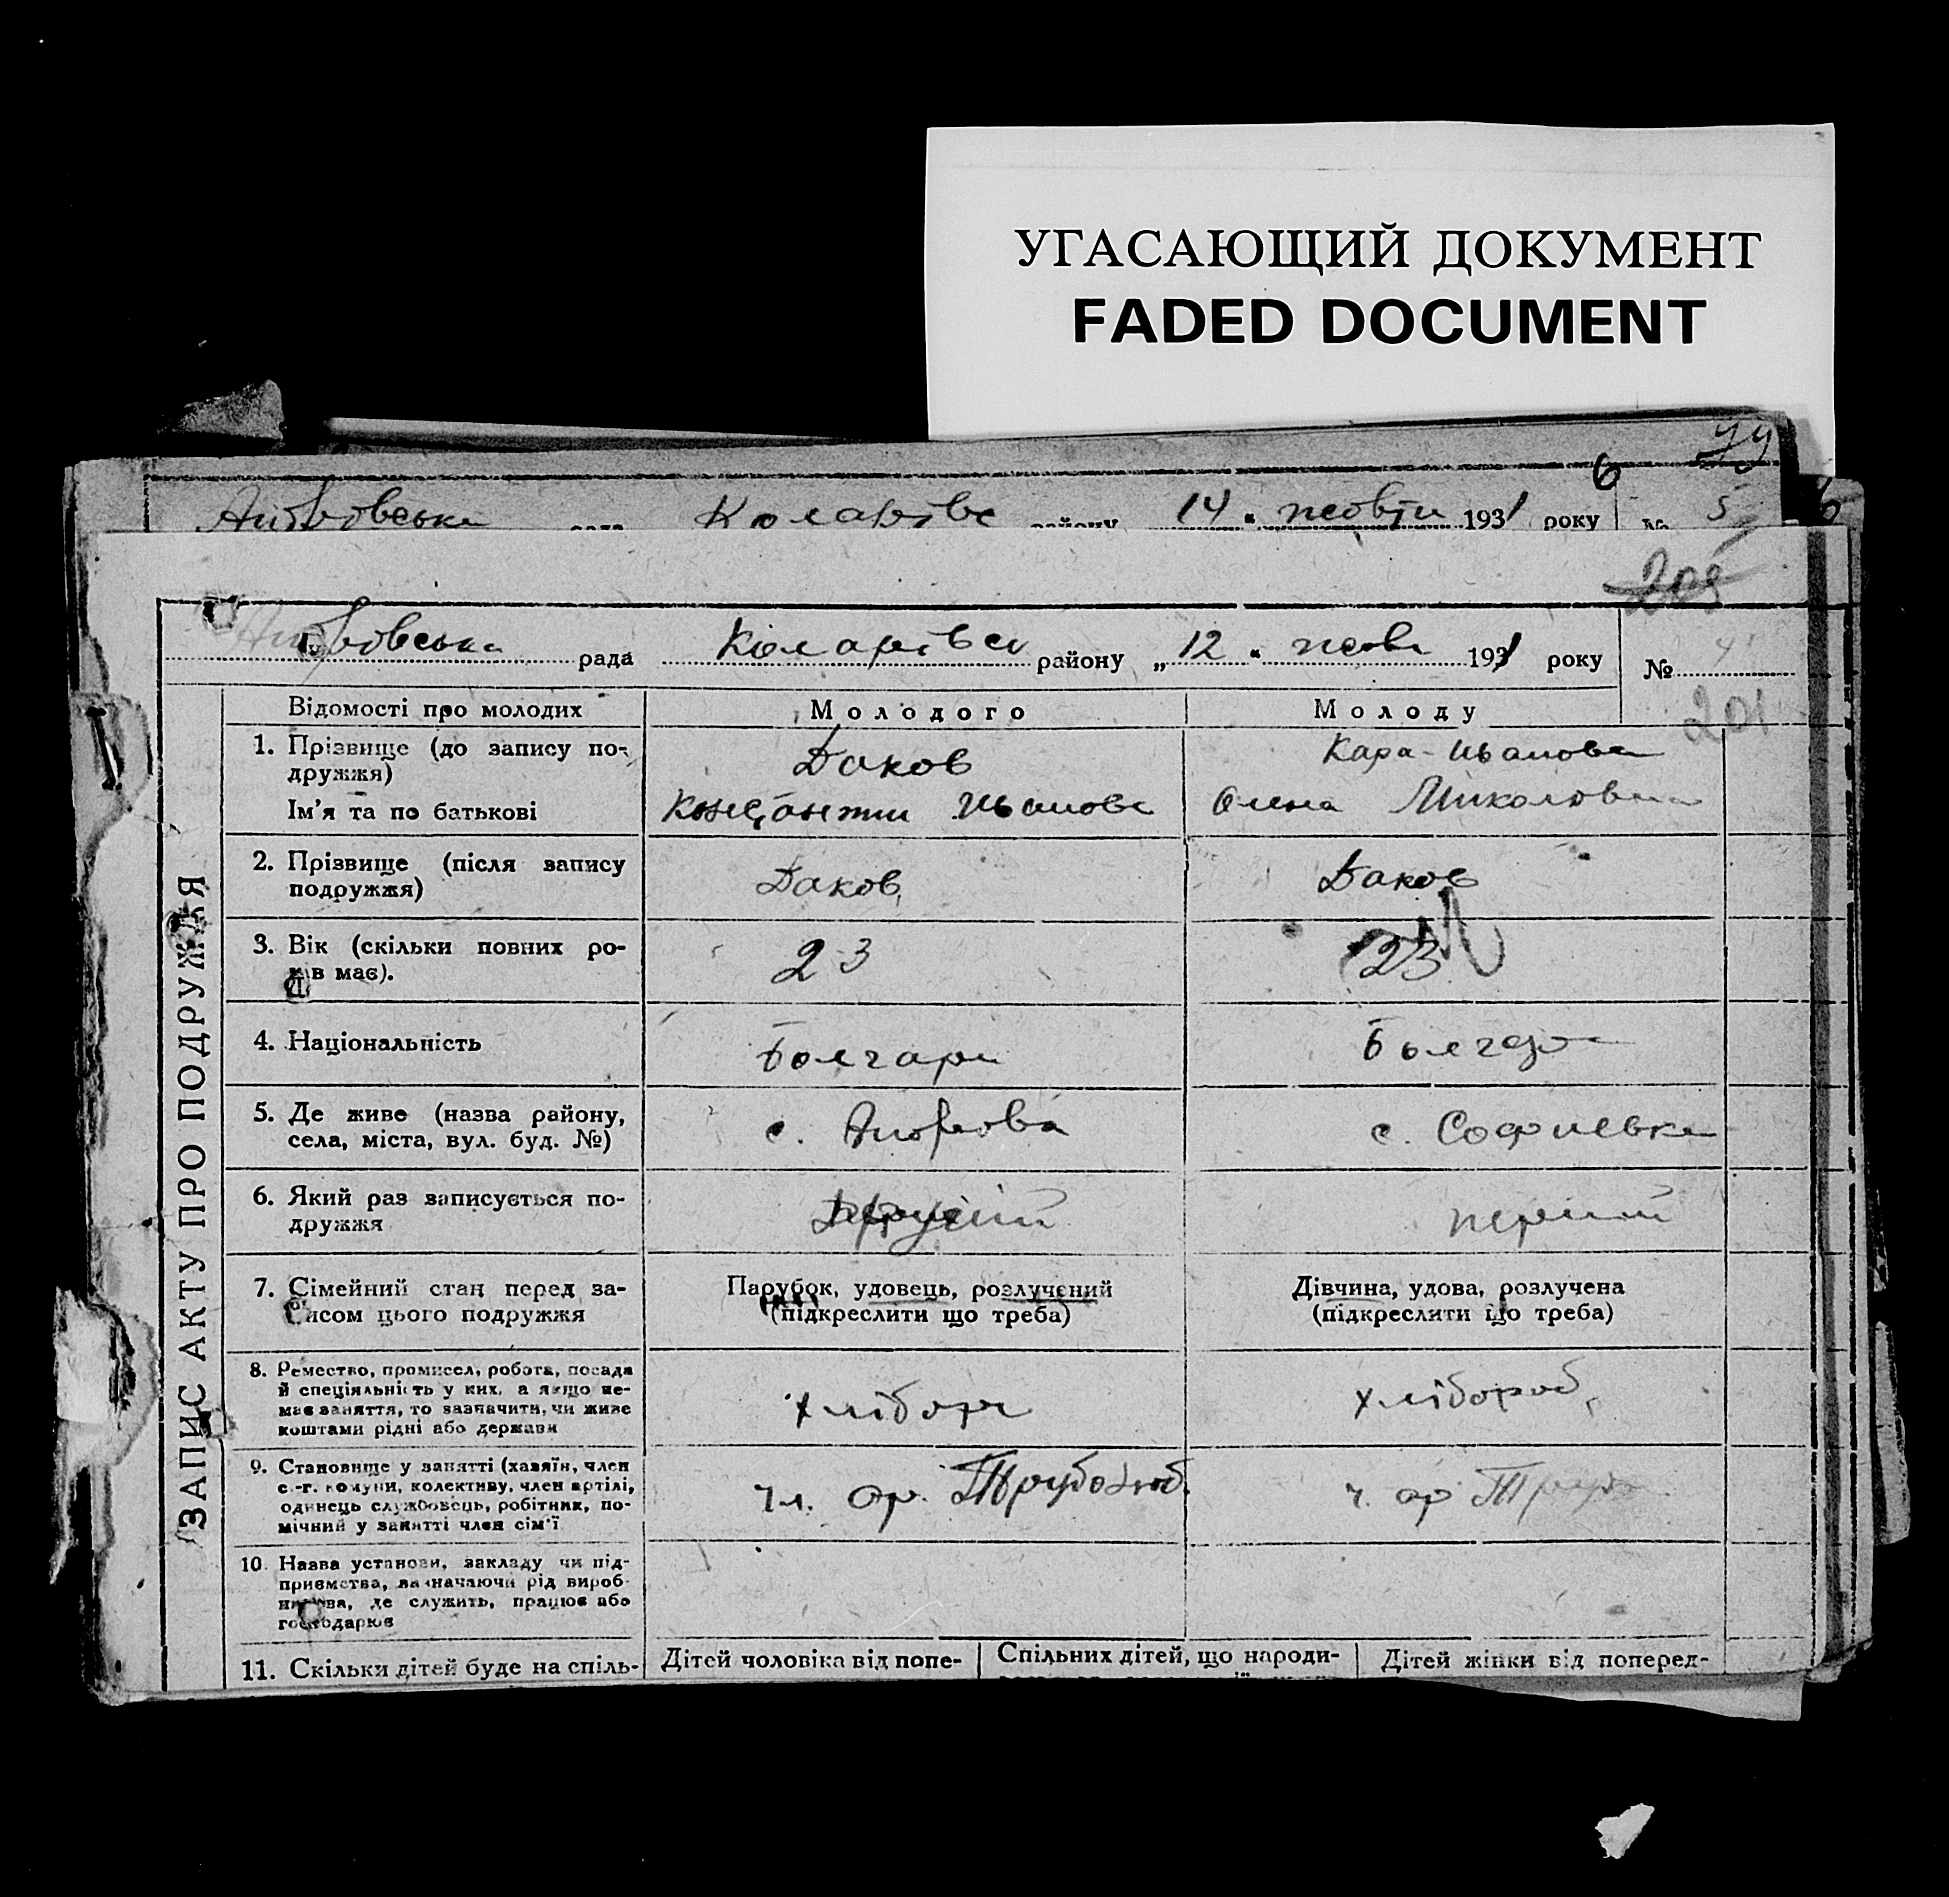 УГАСАЮЩИЙ ДОКУМЕНТ
FADED DOCUMENT
6
14 " жовтн 1931 року № 5
205
Коларівсь району „ 12 " жовт 1931 року № 4
рада
201
ЗАПИС АКТУ ПРО ПОДРУЖЖЯ
Відомості про молодих Молодого Молоду
1. Прізвище (до запису по-
дружжя)
Даков Кара-Иванова
Ім'я та по батькові Иванов Олена Миколовна
2. Прізвище (після запису
подружжя)
Даков Даков
3. Вік (скільки повних ро-
ків має).
23 23
4. Національність Болгари Болгари
5. Де живе (назва району,
села, міста, вул. буд. №)
с. с. Софиевка
6. Який раз записується по-
дружжя
перший
7. Сімейний стан перед за-
писом цього подружжя
Парубок, удовець, розлучений
(підкреслити що треба)
Дівчина, удова, розлучена
(підкреслити що треба)
8. Ремество, промисел, робота, посада
й спеціяльність у них, а якщо не-
має заняття, то зазначити, чи живе
коштами рідні або держави
хлібороб
9. Становище у занятті (хазяїн, член
с.-г. комуни, колективу, член артілі,
одинець службовець, робітник, по-
мічний у занятті член сім'ї
чл. ар. Трудолюб.
ч. ар
10. Назва установи, закладу чи під-
приємства, зазначаючи рід вироб-
ництва, де служить, працює або
господарює
11. Скільки дітей буде на спіль-
Дітей чоловіка від попе-
Спільних дітей, що народи-
Дітей жінки від поперед-